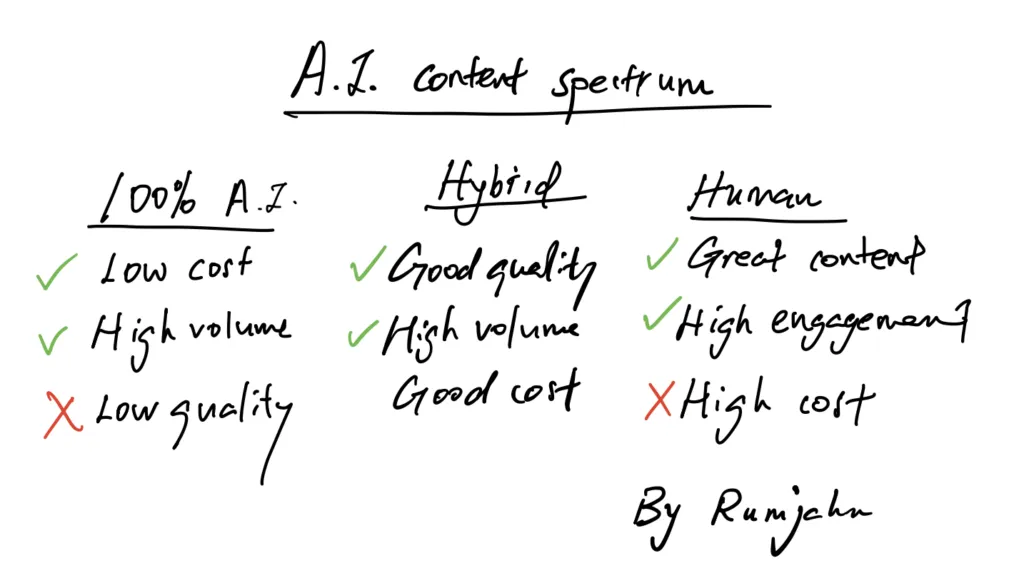 A.I. content spectrum
100% A.I.
✓ Low cost
✓ High volume
X Low quality
Hybrid
✓ Good quality
✓ High volume
Good cost
Human
✓ Great content
✓ High engagement
X High cost
By Rumjahn